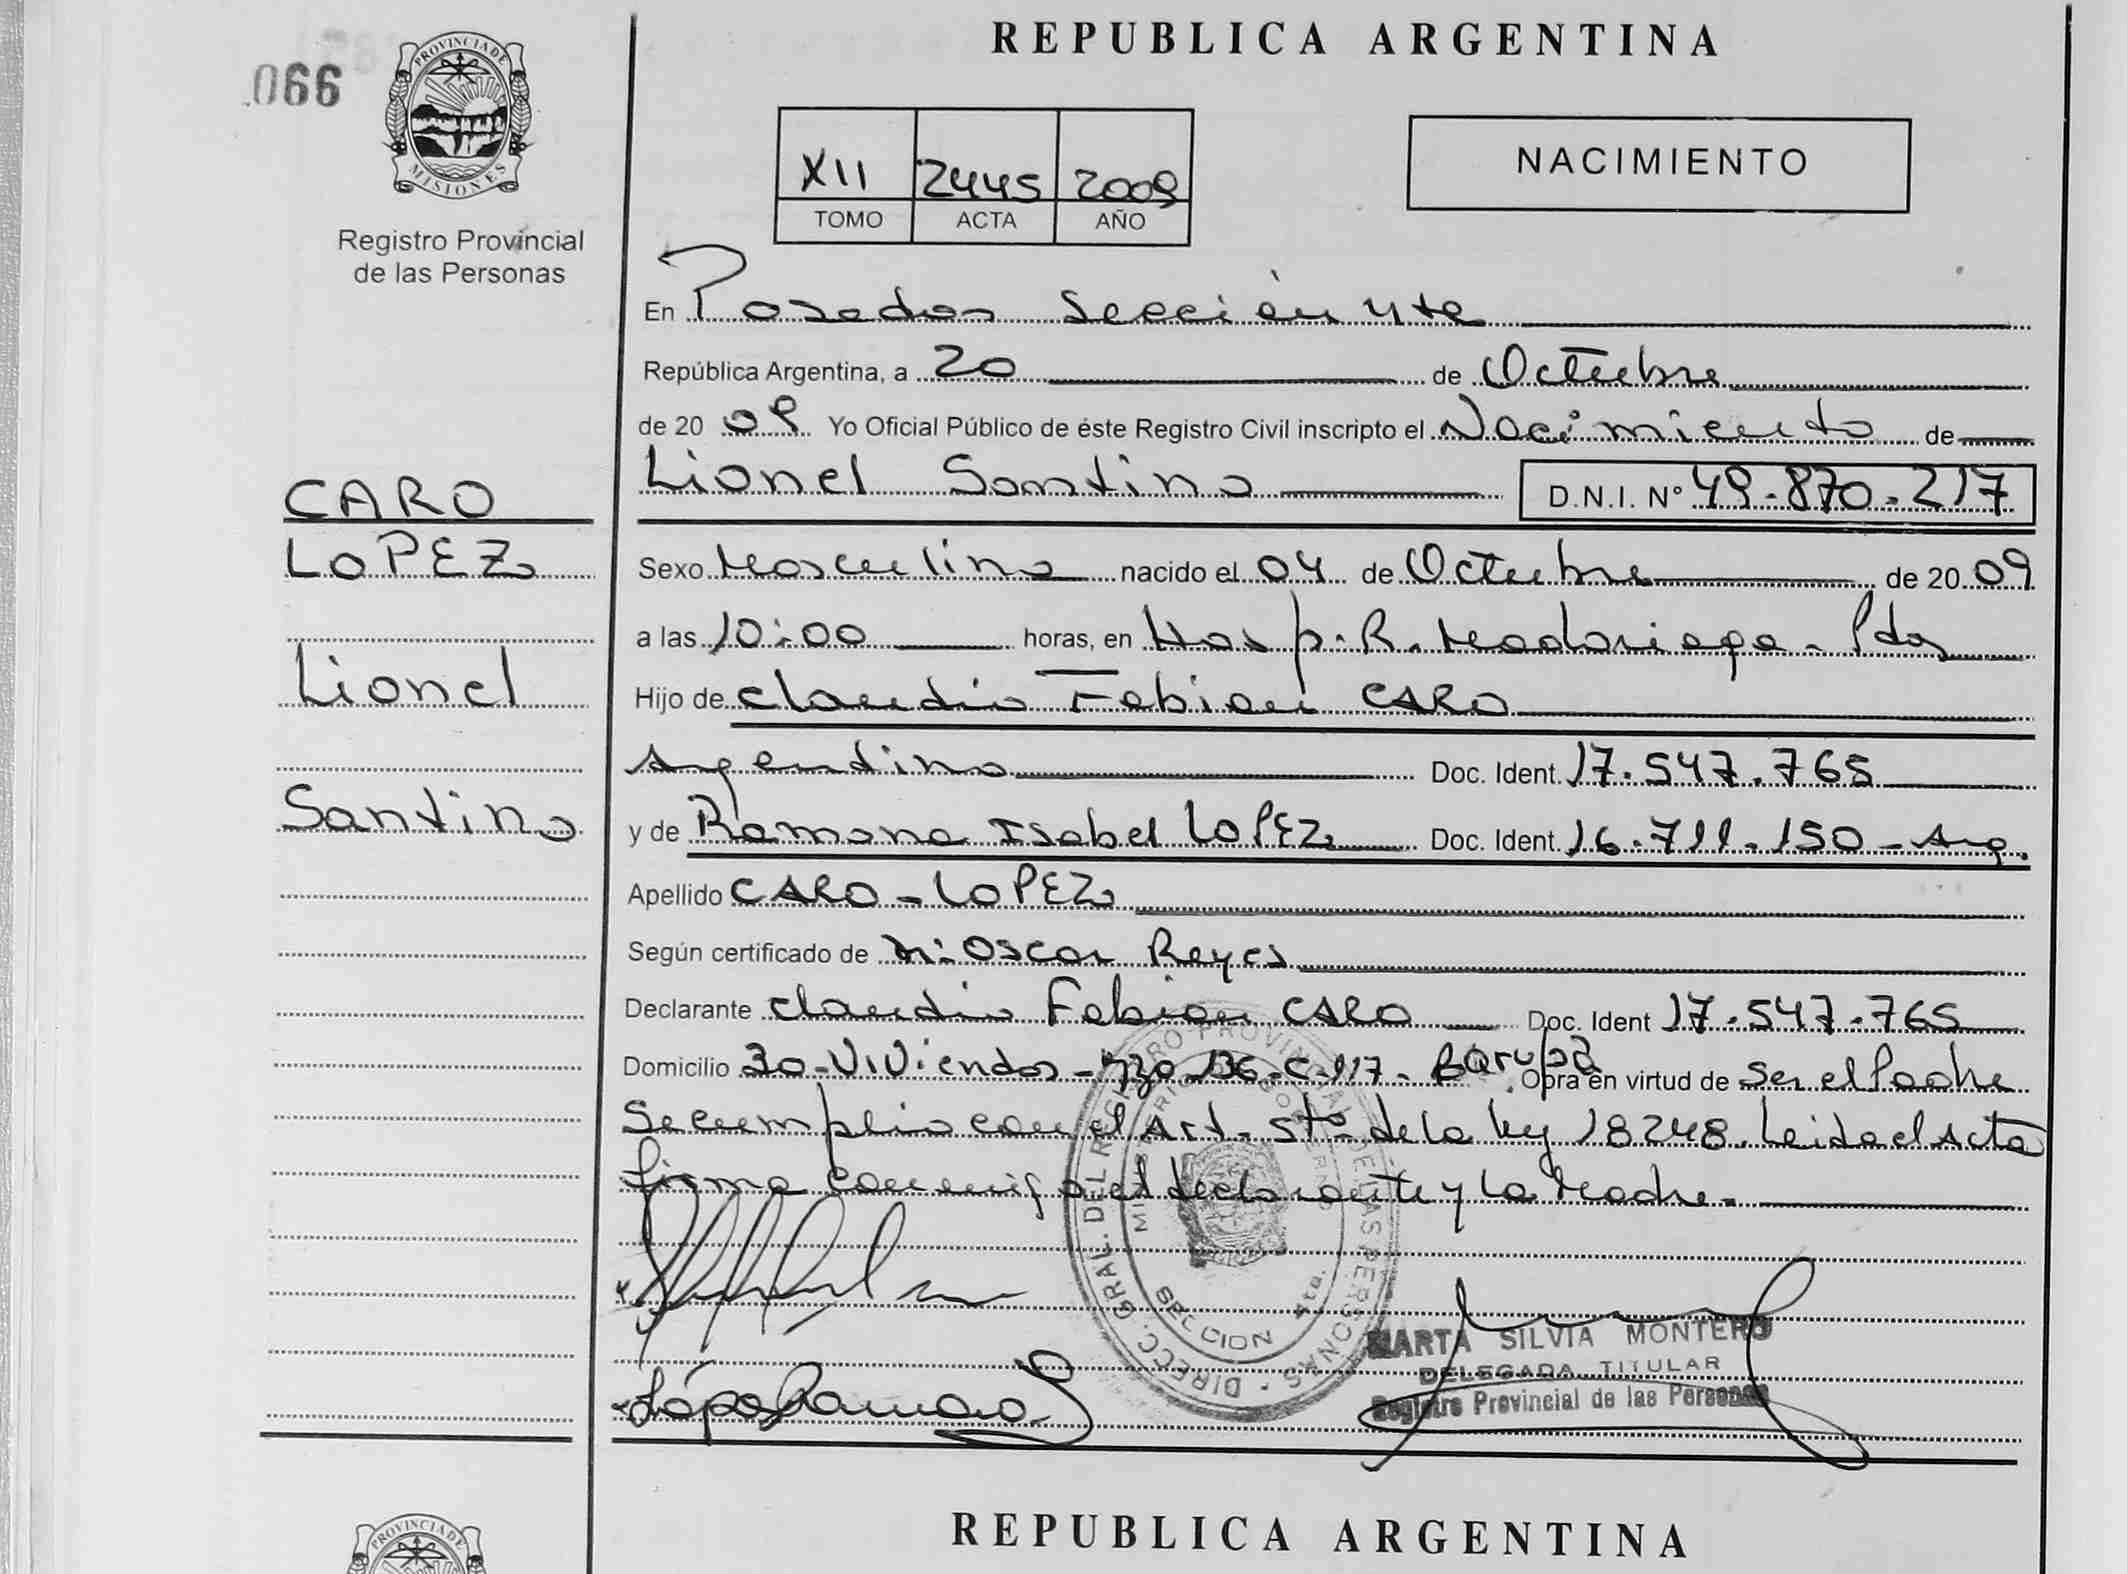 REPUBLICA ARGENTINA
066
PROVINCIA DE
MISIONES
Registro Provincial
de las Personas
XII 2445 2009
TOMO ACTA AÑO
NACIMIENTO
En Posadas Sección 4ta
República Argentina, a 20 de Octubre
de 20 09 Yo Oficial Público de éste Registro Civil inscripto el Nacimiento de
Lionel Santino D.N.I. Nº 49.870.217
CARO
LOPEZ
Lionel
Santino
Sexo Masculino nacido el 04 de Octubre de 20 09
a las 10:00 horas, en Hosp. R. Madariaga - Pdas
Hijo de Claudio Fabian CARO
Argentino Doc. Ident. 17.547.765
y de Ramona Isabel LOPEZ Doc. Ident. 16.711.150 - Arg.
Apellido CARO - LOPEZ
Según certificado de Oscar Reyes
Declarante Claudio Fabian CARO Doc. Ident 17.547.765
Domicilio 30 - Viviendas - Mzo 136 - C. 117 - Garupá Obra en virtud de ser el Padre
Se cumplio con el Art. 5to de la ley 18248. Leida el Acta
firma conmigo el declarante y la Madre.
DIRECC. GRAL. DEL REGISTRO PROVINCIAL DE LAS PERSONAS
SECCION 4ta.
López Ramona
MARTA SILVIA MONTERO
DELEGADA TITULAR
Registro Provincial de las Personas
REPUBLICA ARGENTINA
PROVINCIA DE